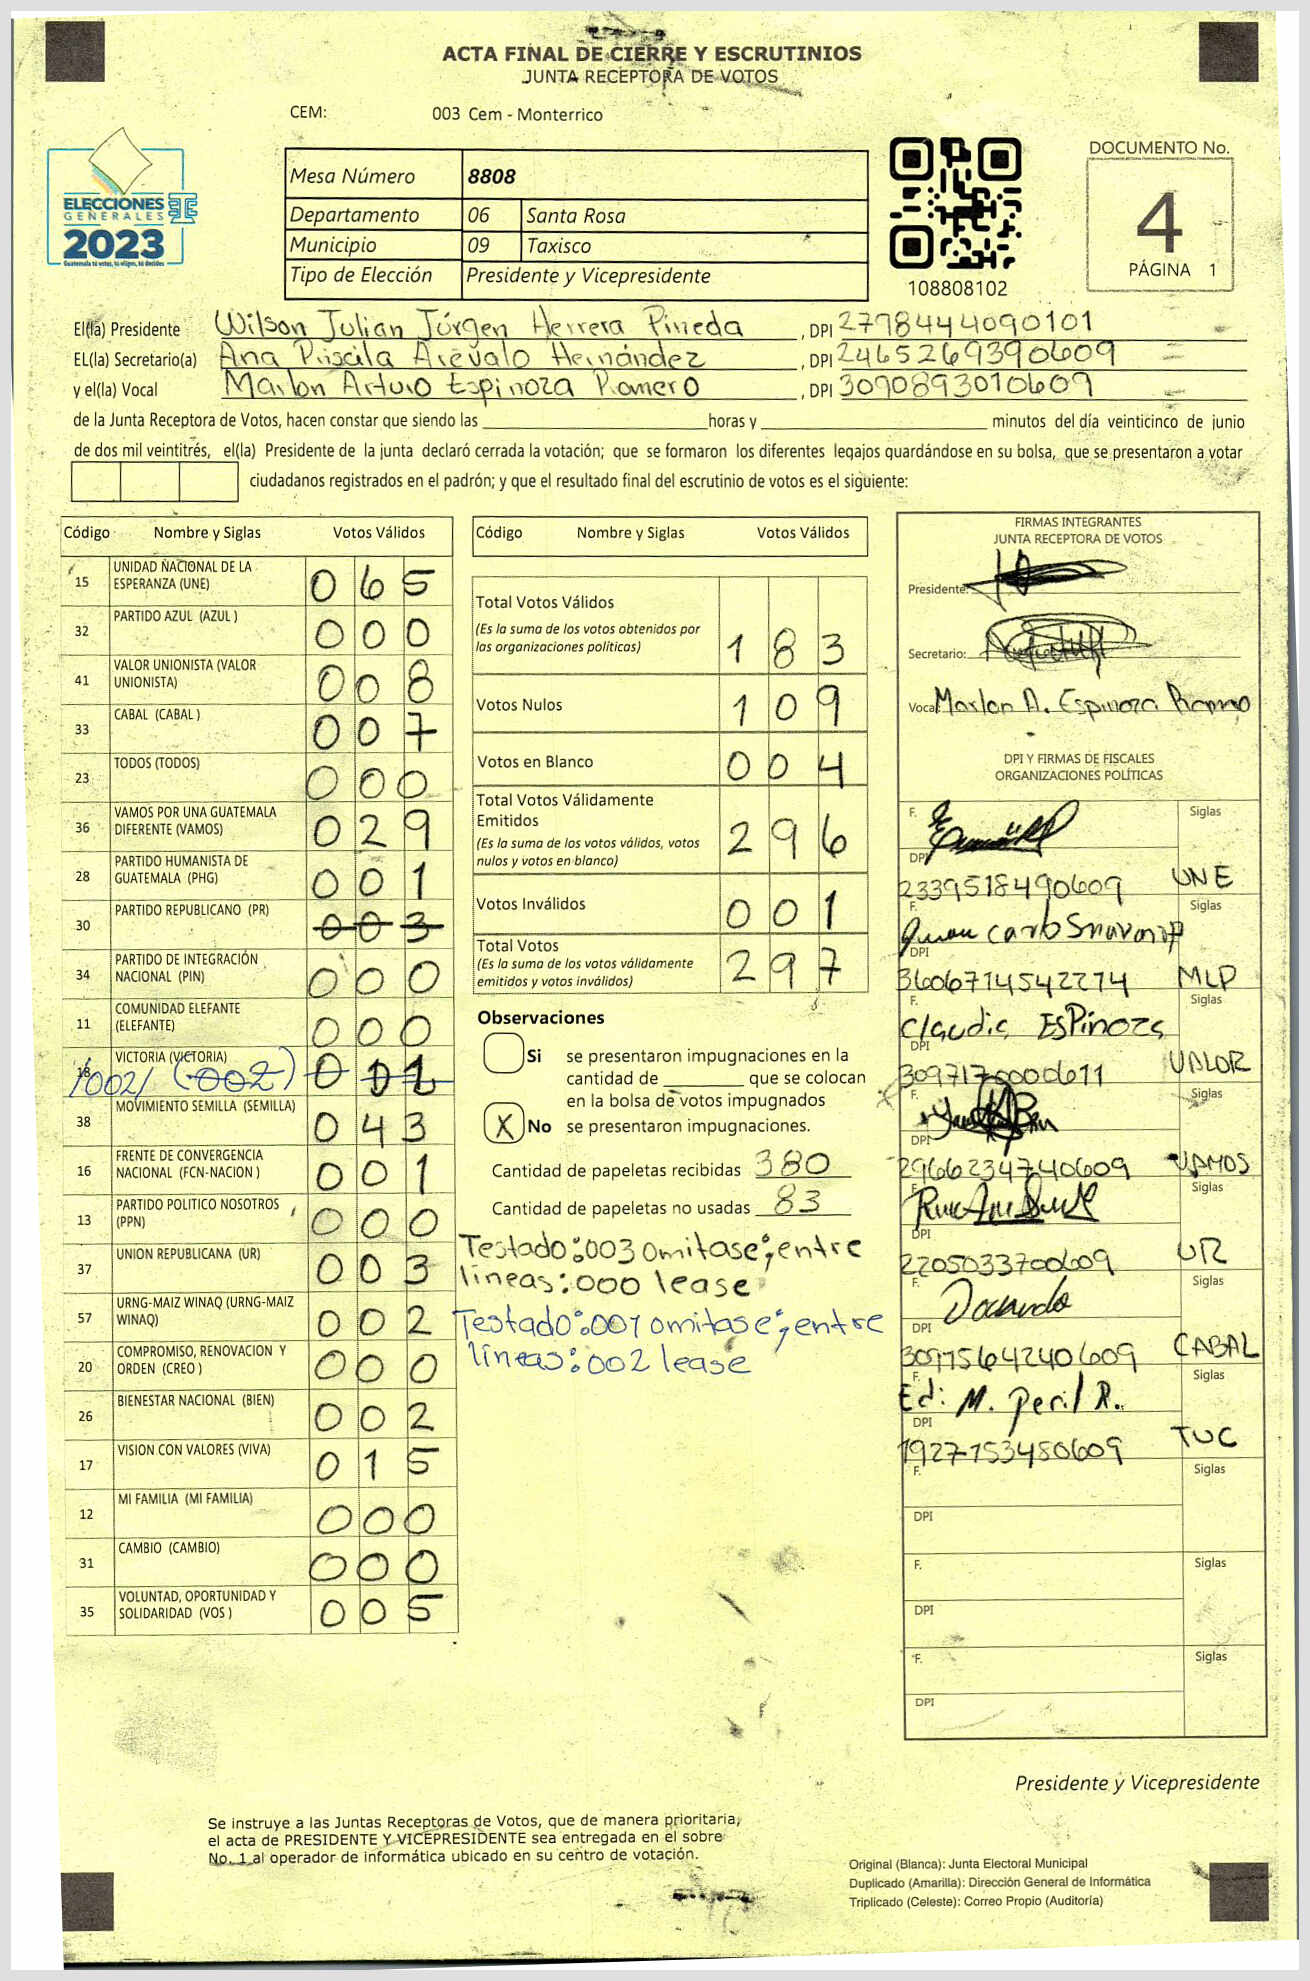 ACTA FINAL DE CIERRE Y ESCRUTINIOS
JUNTA RECEPTORA DE VOTOS
CEM: 003 Cem - Monterrico
ELECCIONES
GENERALES
2023
Guatemala tú votas, tú eliges, tú decides
Mesa Número 8808
Departamento 06 Santa Rosa
Municipio 09 Taxisco
Tipo de Elección Presidente y Vicepresidente
108808102
DOCUMENTO No.
4
PÁGINA 1
El(la) Presidente Wilson Julian Júrgen Herrera Pineda, DPI 2798444090101
EL(la) Secretario(a) Ana Priscila Arévalo Hernández, DPI 2465269390609
y el(la) Vocal Marlon Arturo Espinoza Ramero, DPI 3090893010609
de la Junta Receptora de Votos, hacen constar que siendo las horas y minutos del día veinticinco de junio
de dos mil veintitrés, el(la) Presidente de la junta declaró cerrada la votación; que se formaron los diferentes legajos guardándose en su bolsa, que se presentaron a votar
ciudadanos registrados en el padrón; y que el resultado final del escrutinio de votos es el siguiente:
Código Nombre y Siglas Votos Válidos
15 UNIDAD NACIONAL DE LA ESPERANZA (UNE) 065
32 PARTIDO AZUL (AZUL ) 000
41 VALOR UNIONISTA (VALOR UNIONISTA) 008
33 CABAL (CABAL ) 007
23 TODOS (TODOS) 000
36 VAMOS POR UNA GUATEMALA DIFERENTE (VAMOS) 029
28 PARTIDO HUMANISTA DE GUATEMALA (PHG) 001
30 PARTIDO REPUBLICANO (PR) 003
34 PARTIDO DE INTEGRACIÓN NACIONAL (PIN) 000
11 COMUNIDAD ELEFANTE (ELEFANTE) 000
18 VICTORIA (VICTORIA) /002/ (002)
38 MOVIMIENTO SEMILLA (SEMILLA) 043
16 FRENTE DE CONVERGENCIA NACIONAL (FCN-NACION ) 001
13 PARTIDO POLITICO NOSOTROS (PPN) 000
37 UNION REPUBLICANA (UR) 003
57 URNG-MAIZ WINAQ (URNG-MAIZ WINAQ) 002
20 COMPROMISO, RENOVACION Y ORDEN (CREO ) 000
26 BIENESTAR NACIONAL (BIEN) 002
17 VISION CON VALORES (VIVA) 015
12 MI FAMILIA (MI FAMILIA) 000
31 CAMBIO (CAMBIO) 000
35 VOLUNTAD, OPORTUNIDAD Y SOLIDARIDAD (VOS ) 005
Código Nombre y Siglas Votos Válidos
Total Votos Válidos
(Es la suma de los votos obtenidos por las organizaciones políticas) 183
Votos Nulos 109
Votos en Blanco 004
Total Votos Válidamente Emitidos
(Es la suma de los votos válidos, votos nulos y votos en blanco) 296
Votos Inválidos 001
Total Votos
(Es la suma de los votos válidamente emitidos y votos inválidos) 297
Observaciones
Si se presentaron impugnaciones en la
cantidad de que se colocan
en la bolsa de votos impugnados
X No se presentaron impugnaciones.
Cantidad de papeletas recibidas 380
Cantidad de papeletas no usadas 83
Testado:003 omitase;entre
líneas:000 lease
Testado:001 omitase;entre
líneas:002 lease
FIRMAS INTEGRANTES
JUNTA RECEPTORA DE VOTOS
Presidente:
Secretario:
Vocal Marlon A. Espinoza Ramero
DPI Y FIRMAS DE FISCALES
ORGANIZACIONES POLÍTICAS
F. Siglas
DPI 2339518490609 UNE
F. Siglas
DPI 3606714542274 MLP
F. Claudia Espinoza Siglas
DPI 3097170000611 VALOR
F. Siglas
DPI 2966234740609 VAMOS
F. Siglas
DPI 2205033700609 UR
F. Siglas
DPI 3097564240609 CABAL
F. Ed: M. Siglas
DPI 1927153450609 TUC
F. Siglas
DPI
F. Siglas
DPI
F. Siglas
DPI
Presidente y Vicepresidente
Se instruye a las Juntas Receptoras de Votos, que de manera prioritaria,
el acta de PRESIDENTE Y VICEPRESIDENTE sea entregada en el sobre
No. 1 al operador de informática ubicado en su centro de votación.
Original (Blanca): Junta Electoral Municipal
Duplicado (Amarilla): Dirección General de Informática
Triplicado (Celeste): Correo Propio (Auditoría)